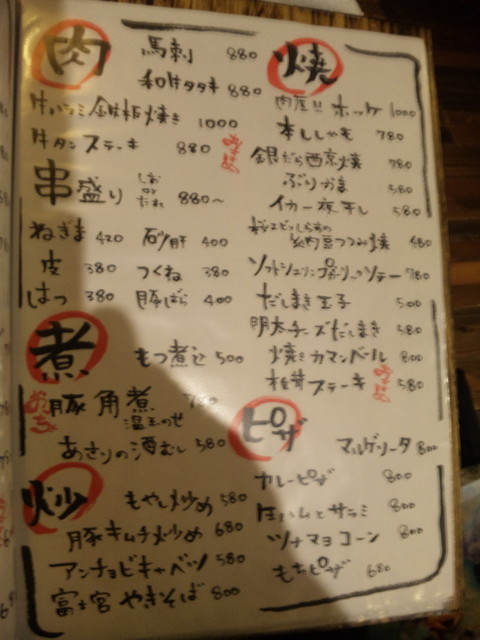 肉
馬刺 880
和牛タタキ 880
牛ハラミ鉄板焼き 1000
牛タンステーキ 880
おすすめ
串盛り しお or たれ 880〜
ねぎま 420 砂肝 400
皮 380 つくね 380
はつ 380 豚ばら 400
煮
もつ煮込 500
豚角煮
温玉のせ
あさりの酒むし 580
炒
もやし炒め 580
豚キムチ炒め 680
アンチョビキャベツ 580
富士宮やきそば 800
焼
肉厚!! ホッケ 1000
本ししゃも 780
銀だら西京焼 780
ぶりかま 580
イカ一夜干し 580
納豆つつみ焼 480
ソテー 780
だしまき玉子 500
明太チーズだしまき 580
焼きカマンベール 800
椎茸ステーキ 580
おすすめ
ピザ
マルゲリータ 800
カレーピザ 800
生ハムとサラミ 800
ツナマヨコーン 800
もちピザ 680